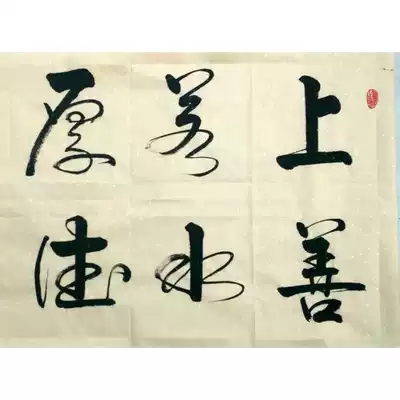 上善
若水
厚德